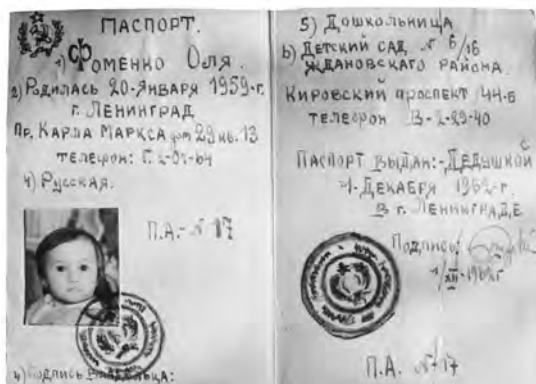 ПАСПОРТ.
1) ФОМЕНКО ОЛЯ.
2) РОДИЛАСЬ 20-ЯНВАРЯ 1959-г.
г. ЛЕНИНГРАД
ПР. КАРЛА МАРКСА 29 кв. 13
ТЕЛЕФОН: Г. 2-02-64
4) РУССКАЯ.
П.А.-N 17
4) ПОДПИСЬ ВЛАДЕЛЬЦА:
5) ДОШКОЛЬНИЦА
6) ДЕТСКИЙ САД N 6/16
ЖДАНОВСКАГО РАЙОНА.
КИРОВСКИЙ ПРОСПЕКТ 44-Б
ТЕЛЕФОН В-2-29-40
ПАСПОРТ ВЫДАН:-ДЕДУШКОЙ
1-ДЕКАБРЯ 1962-г.
В г. ЛЕНИНГРАДЕ
ПОДПИСЬ:
1/XII-1962г
П.А. N-17